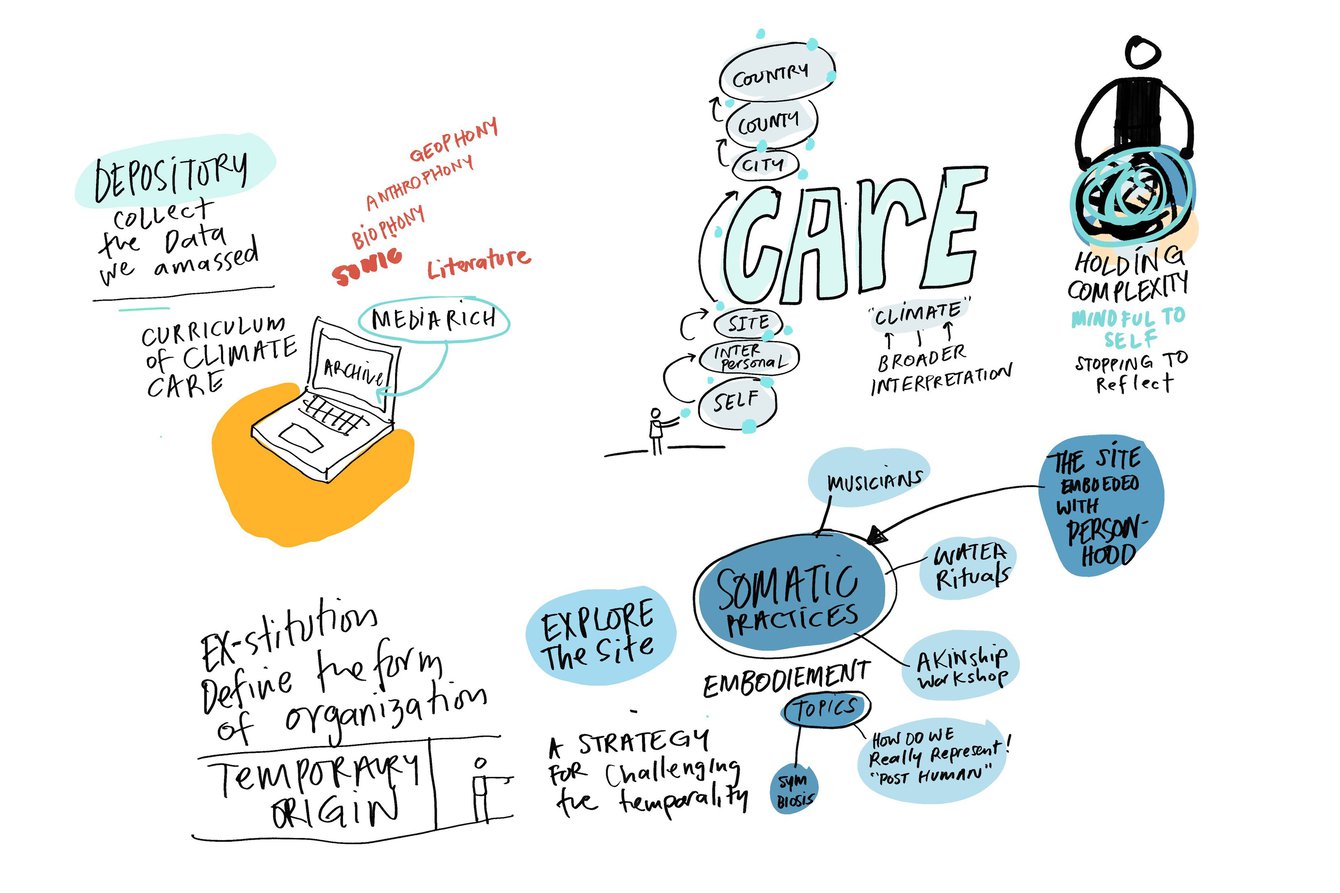 DEPOSITORY
collect
the Data
we amassed
CURRICULUM
OF CLIMATE
CARE
GEOPHONY
ANTHROPHONY
BIOPHONY
SONIC
Literature
MEDIA RICH
ARCHIVE
COUNTRY
COUNTY
CITY
CARE
SITE
INTER
personal
SELF
"CLIMATE"
BROADER
INTERPRETATION
HOLDING
COMPLEXITY
MINDFUL TO
SELF
STOPPING TO
Reflect
EX-stitution
Define the form
of organization
TEMPORAURY
ORIGIN
EXPLORE
The Site
A STRATEGY
FOR Challenging
the temporality
MUSICIANS
SOMATIC
PRACTICES
WATER
Rituals
AKINship
workshop
THE SITE
EMBDEDED
WITH
PERSON-
HOOD
EMBODIEMENT
TOPICS
SYM
BIOSIS
HOW DO WE
Really Represent!
"POST HUMAN"